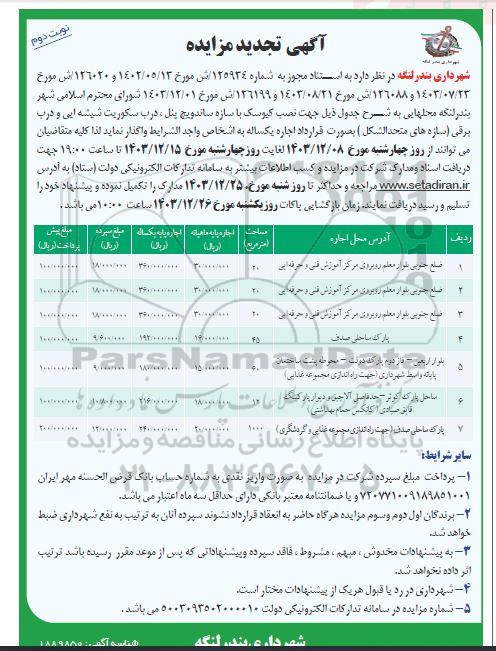 نوبت دوم
آگهی تجدید مزایده
شهرداری بندر لنگه
شهرداری بندرلنگه در نظر دارد به استناد مجوز به شماره ۱۲۵۹۳۴/ش مورخ ۱۴۰۲/۰۵/۱۳ و ۱۲۶۰۲۰/ش مورخ
۱۴۰۳/۰۷/۲۳ و ۱۲۶۰۸۸/ش مورخ ۱۴۰۳/۰۸/۲۱ و ۱۲۶۱۹۹/ش مورخ ۱۴۰۳/۱۲/۰۱ شورای محترم اسلامی شهر
بندرلنگه محلهایی به شرح جدول ذیل جهت نصب کیوسک با سازه ساندویچ پنل ، درب سکوریت شیشه ایی و درب
برقی (سازه های متحدالشکل) بصورت قرارداد اجاره یکساله به اشخاص واجد الشرایط واگذار نماید لذا کلیه متقاضیان
می توانند از روز چهارشنبه مورخ ۱۴۰۳/۱۲/۰۸ لغایت روزچهارشنبه مورخ ۱۴۰۳/۱۲/۱۵ تا ساعت ۱۹:۰۰ جهت
دریافت اسناد ومدارک شرکت در مزایده و کسب اطلاعات بیشتر به سامانه تدارکات الکترونیکی دولت (ستاد) به آدرس
www.setadiran.ir مراجعه و حداکثر تا روز شنبه مورخ ۱۴۰۳/۱۲/۲۵ مدارک را تکمیل نموده و پیشنهاد خود را
تسلیم و رسید دریافت نمایند. زمان بازگشایی پاکات روزیکشنبه مورخ ۱۴۰۳/۱۲/۲۶ ساعت ۱۰:۰۰ می باشد .
ردیف آدرس محل اجاره مساحت (مترمربع) اجاره بهاء ماهیانه (ریال) اجاره پایه یکساله (ریال) مبلغ سپرده (ریال) مبلغ پیش پرداخت (ریال)
۱ ضلع جنوبی بلوار معلم روبروی مرکز آموزش فنی و حرفه ایی ۲۰ ۳۰/۰۰۰/۰۰۰ ۳۶۰/۰۰۰/۰۰۰ ۱۸/۰۰۰/۰۰۰ ۱۰۰/۰۰۰/۰۰۰
۲ ضلع جنوبی بلوار معلم روبروی مرکز آموزش فنی و حرفه ایی ۲۰ ۳۰/۰۰۰/۰۰۰ ۳۶۰/۰۰۰/۰۰۰ ۱۸/۰۰۰/۰۰۰ ۱۰۰/۰۰۰/۰۰۰
۳ ضلع جنوبی بلوار معلم روبروی مرکز آموزش فنی و حرفه ایی ۲۰ ۳۰/۰۰۰/۰۰۰ ۳۶۰/۰۰۰/۰۰۰ ۱۸/۰۰۰/۰۰۰ ۱۰۰/۰۰۰/۰۰۰
۴ پارک ساحلی صدف ۴۵ ۱۶/۰۰۰/۰۰۰ ۱۹۲/۰۰۰/۰۰۰ ۹/۶۰۰/۰۰۰ ۱۰۰/۰۰۰/۰۰۰
۵ بلوار اربعین – فاز دوم پارک دولت – محوطه پشت ساختمان پایانه واسط شهرداری (جهت راه اندازی مجموعه غذایی) ۶۰ ۱۵/۰۰۰/۰۰۰ ۱۸۰/۰۰۰/۰۰۰ ۹/۰۰۰/۰۰۰ ۱۰۰/۰۰۰/۰۰۰
۶ ساحل پارک کوثر – حدفاصل آلاچیق و دیوار پارکینگ قایق صیادی (کانکس حمام بهداشتی) ۱۲ ۱۸/۰۰۰/۰۰۰ ۲۱۶/۰۰۰/۰۰۰ ۱۰/۸۰۰/۰۰۰ ۱۰۰/۰۰۰/۰۰۰
۷ پارک ساحلی صدف (جهت راه اندازی مجموعه غذایی و گردشگری) ۱۰۰۰ ۲۰/۰۰۰/۰۰۰ ۲۴۰/۰۰۰/۰۰۰ ۱۲/۰۰۰/۰۰۰ ۲۰۰/۰۰۰/۰۰۰
ParsNamadData
پایگاه اطلاع رسانی مناقصه و مزایده
سایر شرایط:
۱– پرداخت مبلغ سپرده شرکت در مزایده به صورت واریز نقدی به شماره حساب بانک قرض الحسنه مهر ایران
۷۲۰۷۷۱۰۰۹۱۸۹۸۵۱۰۰۱ و یا ضمانتنامه معتبر بانکی دارای حداقل سه ماه اعتبار می باشد.
۲– برندگان اول دوم وسوم مزایده هرگاه حاضر به انعقاد قرارداد نشوند سپرده آنان به ترتیب به نفع شهرداری ضبط
خواهد شد.
۳– به پیشنهادات مخدوش ، مبهم ، مشروط ، فاقد سپرده وپیشنهاداتی که پس از موعد مقرر رسیده باشد ترتیب
اثر داده نخواهد شد.
۴– شهرداری در رد یا قبول هریک از پیشنهادات مختار است.
۵– شماره مزایده در سامانه تدارکات الکترونیکی دولت ۵۰۰۳۰۹۳۵۰۲۰۰۰۰۱۰ می باشد .
شهرداری بندر لنگه
شناسه آگهی: ۱۸۸۹۸۵۰